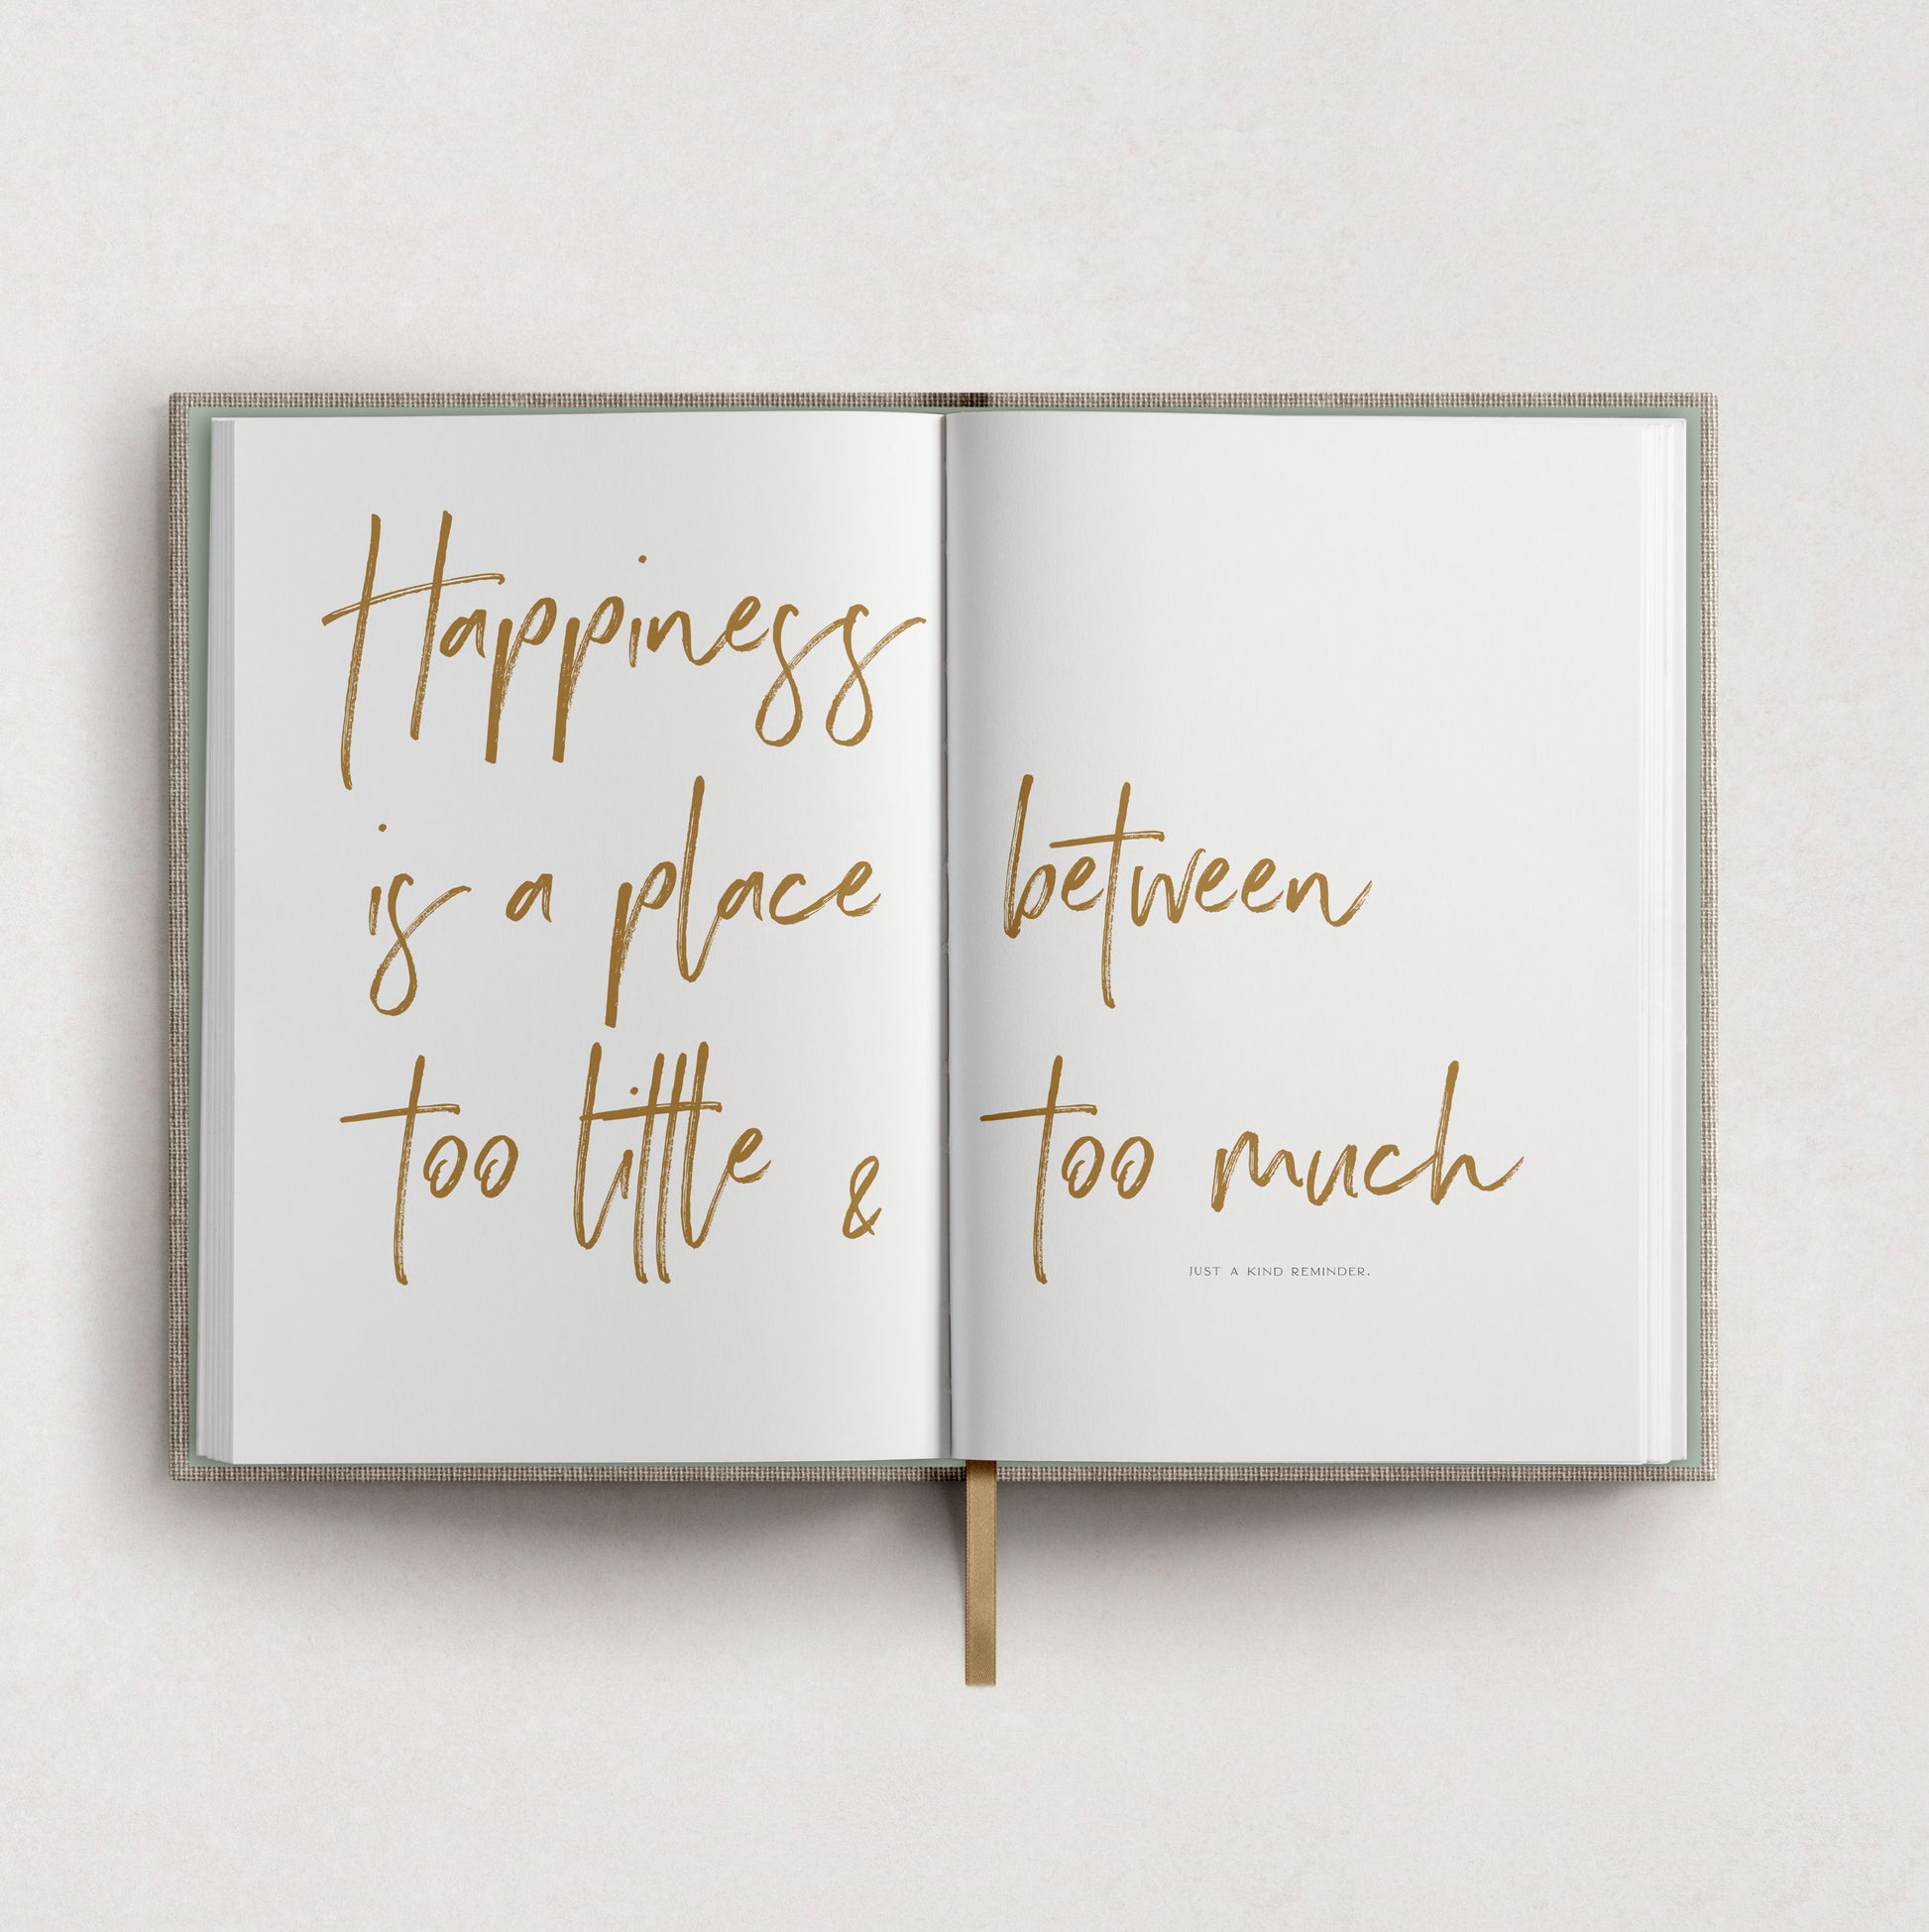 Happiness
is a place between
too little & too much
JUST A KIND REMINDER.